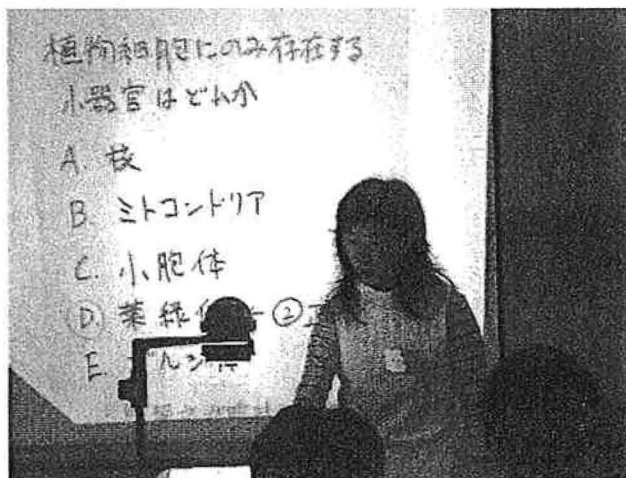 植物細胞にのみ存在する
小器官はどれか
A. 核
B. ミトコンドリア
C. 小胞体
Ⓓ 葉緑 ②
E. ルジ